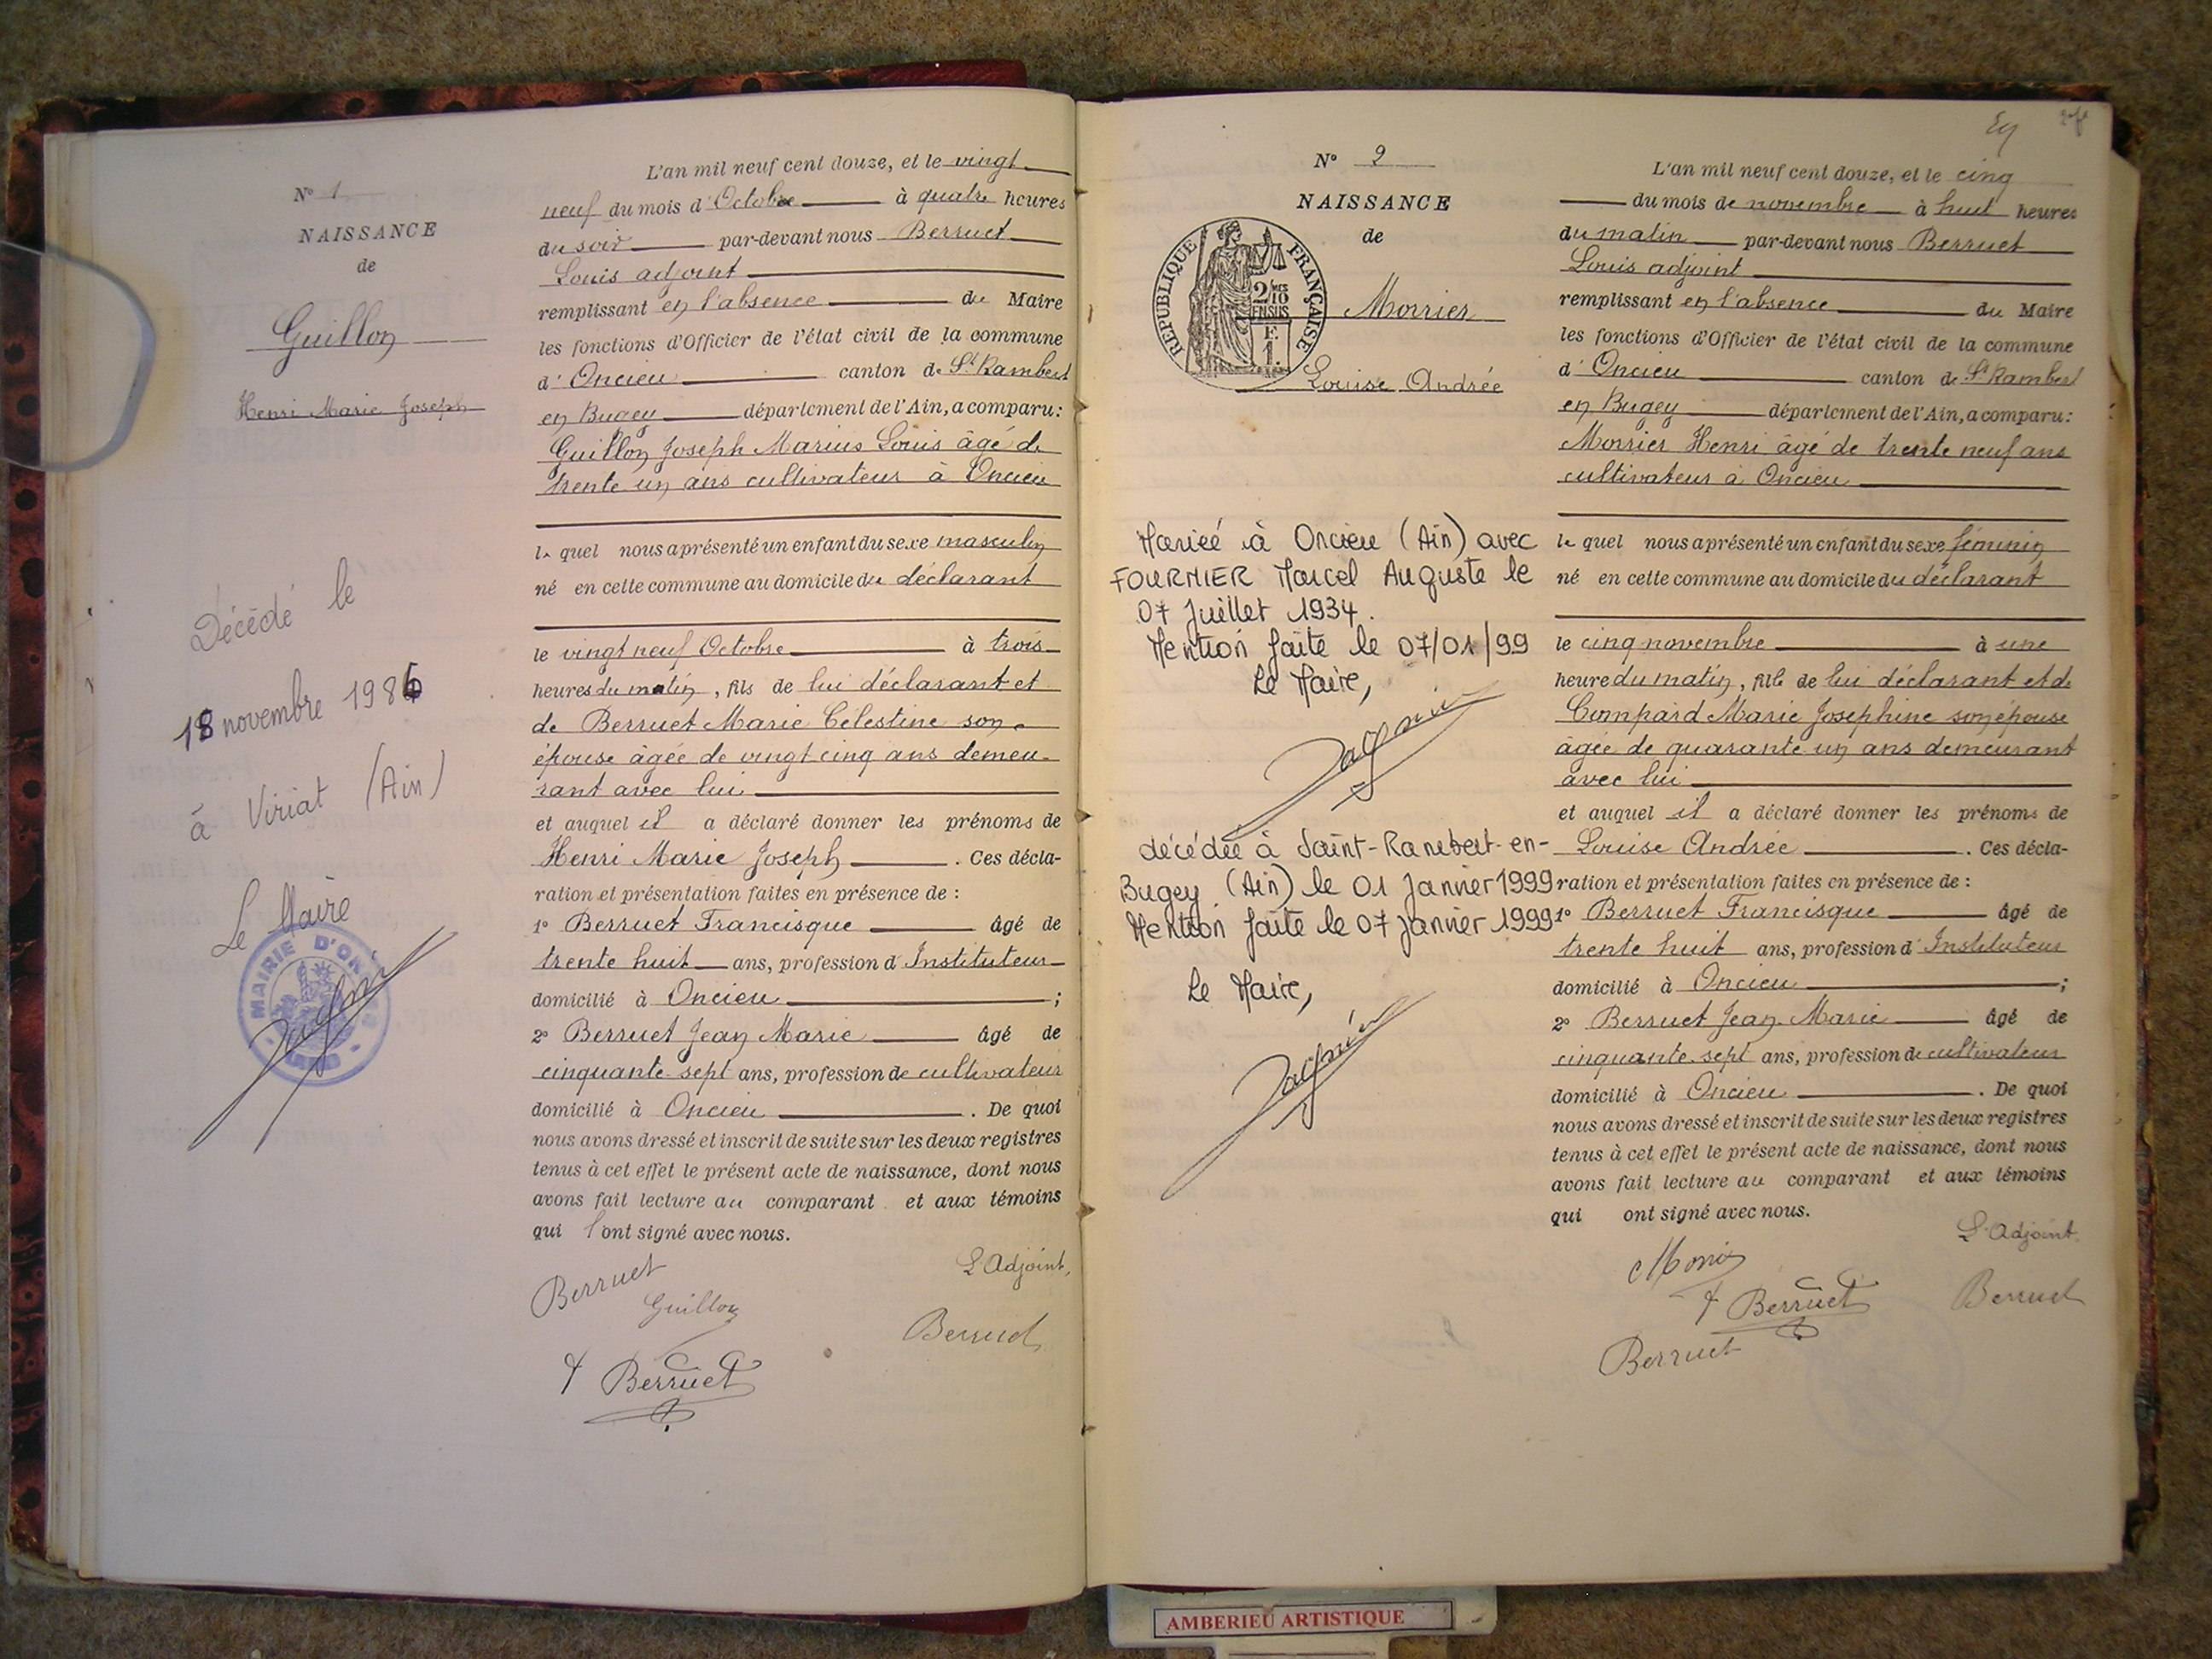 N° 1
NAISSANCE
de
Guillon
Henri Marie Joseph
Décédé le
18 novembre 1986
à Viriat (Ain)
Le Maire
MAIRIE D'ONCIEU
L'an mil neuf cent douze, et le vingt
neuf du mois d'Octobre à quatre heures
du soir par-devant nous Berruet
Louis adjoint
remplissant en l'absence du Maire
les fonctions d'Officier de l'état civil de la commune
d'Oncieu canton de St Rambert
en Bugey département de l'Ain, a comparu :
Guillon Joseph Marius Louis âgé de
trente un ans cultivateur à Oncieu
le quel nous a présenté un enfant du sexe masculin
né en cette commune au domicile du déclarant
le vingt neuf Octobre à trois
heures du matin, fils de lui déclarant et
de Berruet Marie Célestine son
épouse âgée de vingt cinq ans demeu-
rant avec lui
et auquel il a déclaré donner les prénoms de
Henri Marie Joseph. Ces décla-
ration et présentation faites en présence de :
1° Berruet Francisque âgé de
trente huit ans, profession d'Instituteur
domicilié à Oncieu ;
2° Berruet Jean Marie âgé de
cinquante sept ans, profession de cultivateur
domicilié à Oncieu. De quoi
nous avons dressé et inscrit de suite sur les deux registres
tenus à cet effet le présent acte de naissance, dont nous
avons fait lecture au comparant et aux témoins
qui l'ont signé avec nous.
L'Adjoint,
Berruet
Guillon
Berruet
Berruet
N° 2
NAISSANCE
de
REPUBLIQUE FRANÇAISE
2/10
EN SUS
F.
1.
Morrier
Louise Andrée
Mariée à Oncieu (Ain) avec
FOURNIER Marcel Auguste le
07 Juillet 1934.
Mention faite le 07/01/99
Le Maire,
décédée à Saint-Rambert-en-
Bugey (Ain) le 01 Janvier 1999
Mention faite le 07 Janvier 1999
Le Maire,
L'an mil neuf cent douze, et le cinq
du mois de novembre à huit heures
du matin par-devant nous Berruet
Louis adjoint
remplissant en l'absence du Maire
les fonctions d'Officier de l'état civil de la commune
d'Oncieu canton de St Rambert
en Bugey département de l'Ain, a comparu :
Morrier Henri âgé de trente neuf ans
cultivateur à Oncieu
le quel nous a présenté un enfant du sexe féminin
né en cette commune au domicile du déclarant
le cinq novembre à une
heure du matin, fille de lui déclarant et de
Compard Marie Josephine son épouse
âgée de quarante un ans demeurant
avec lui
et auquel il a déclaré donner les prénoms de
Louise Andrée. Ces décla-
ration et présentation faites en présence de :
1° Berruet Francisque âgé de
trente huit ans, profession d'Instituteur
domicilié à Oncieu ;
2° Berruet Jean Marie âgé de
cinquante sept ans, profession de cultivateur
domicilié à Oncieu. De quoi
nous avons dressé et inscrit de suite sur les deux registres
tenus à cet effet le présent acte de naissance, dont nous
avons fait lecture au comparant et aux témoins
qui ont signé avec nous.
L'Adjoint.
Berruet
Berruet
Berruet
AMBERIEU ARTISTIQUE